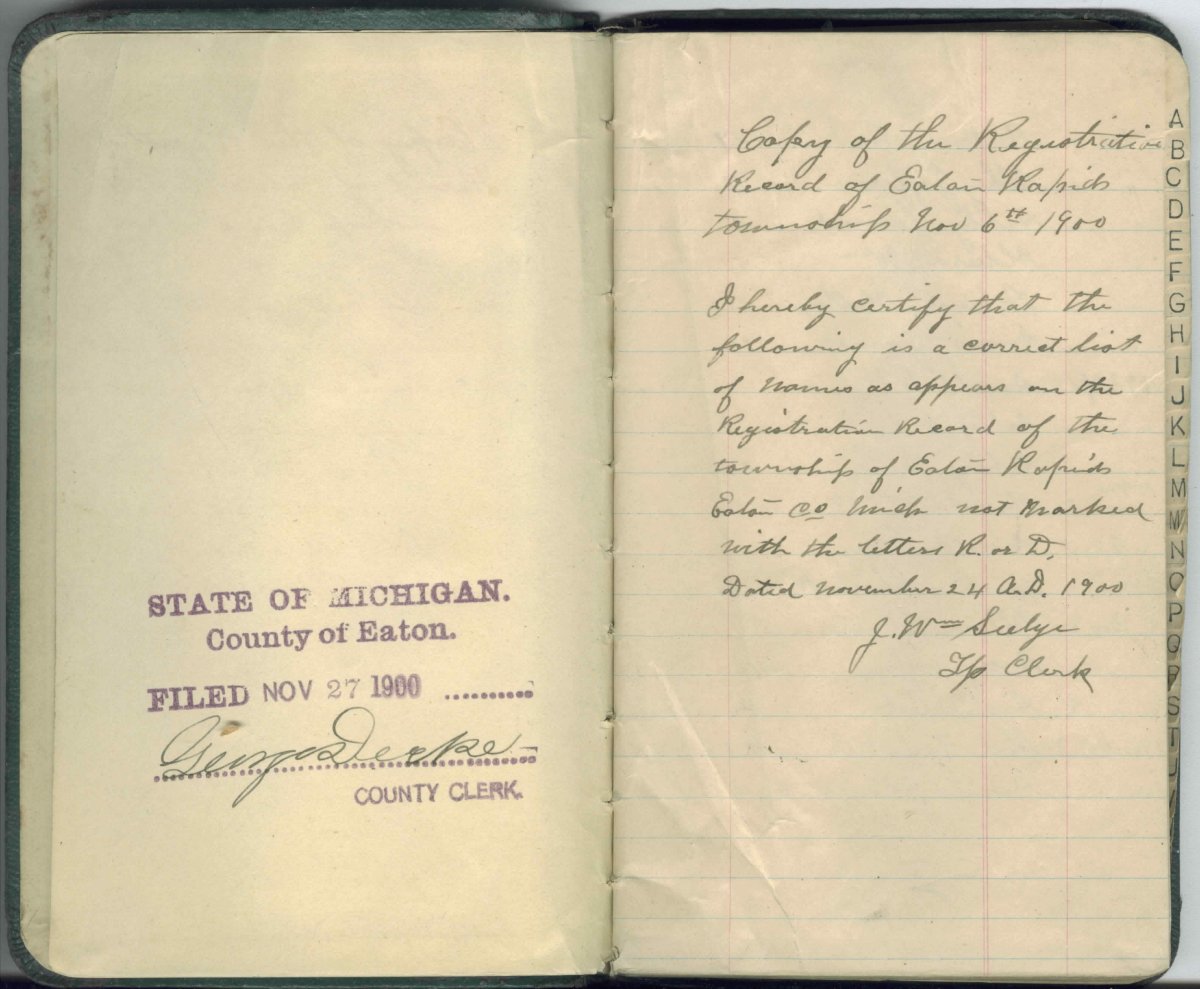 STATE OF MICHIGAN.
County of Eaton.
FILED NOV 27 1900
George
COUNTY CLERK.
Copy of the Registration
Record of Eaton Rapids
township Nov 6th 1900
I hereby certify that the
following is a correct list
of names as appears on the
Registration Record of the
township of Eaton Rapids
Eaton Co Mich not marked
with the letters R. or D.
Dated November 24 A.D. 1900
J. Wm Seelye
Tp Clerk
A
B
C
D
E
F
G
H
I
J
K
L
M
M
N
O
P
Q
R
S
T
U